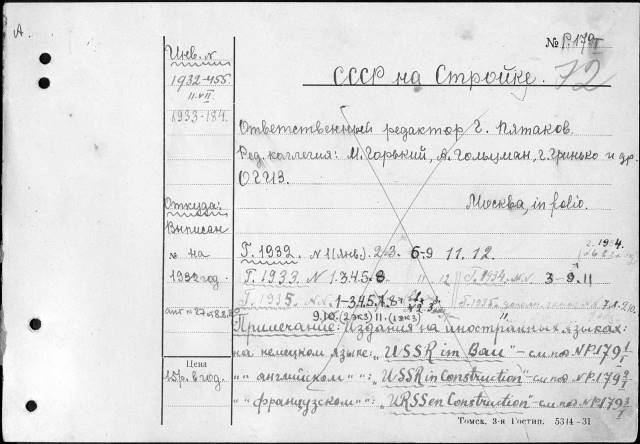 А.
№ Р.179 I
Инв. №
1932-455
11.VII
1933-184.
СССР на Стройке. 72
Ответственный редактор Г. Пятаков.
Ред. коллегия: М. Горький, А. Гольцман, Г. Гринько и др.
ОГИЗ.
Москва, in folio.
Откуда:
Выписан
№ на
1932 год.
Г. 1932 N 1 (Янв). 2-3. 6-9 11. 12.
Г. 1933 N 1.3.4.5-8 11 12 Г. 1934 N. N. 3-9.11
Г. 1935. N. N. 1-3.4.5.7.8
9.10. (2 экз) 11. (2 экз)
Примечание: Издания на иностранных языках:
на немецком языке: "USSR im Bau" - см. под N P.179 1/I
"" английском "": "USSR in Construction" - см. под N P.179 2/I
"" французском "": "URSS en Construction" - см. под N P.179 3/I
Цена
12 р. в год.
Томск, 3-я Гостип. 5314-31